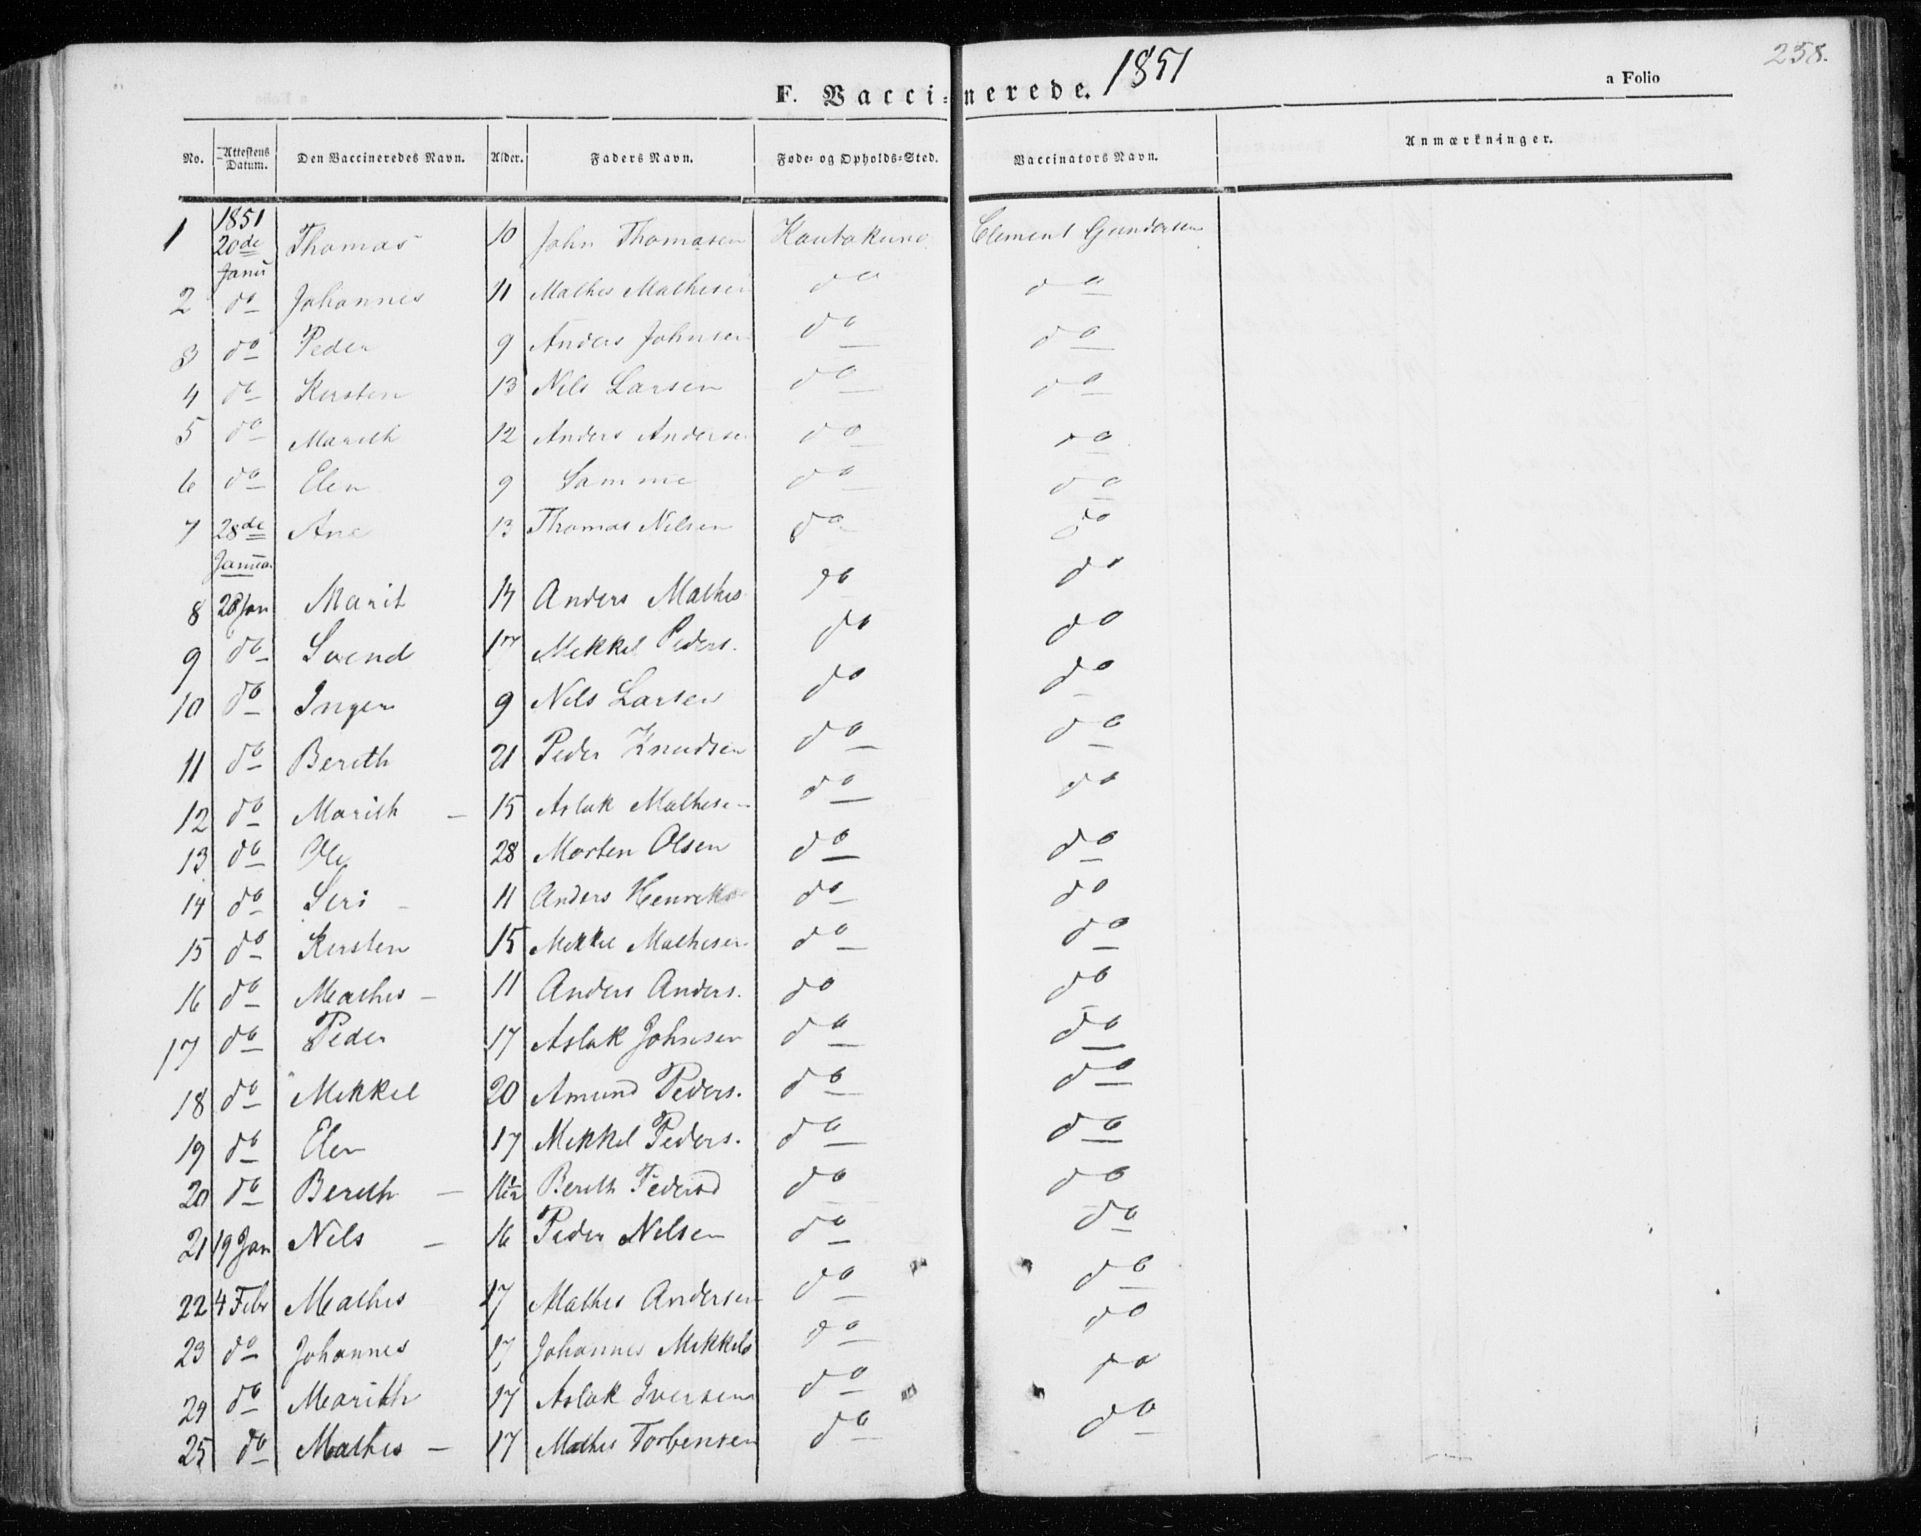 258.
F. Vaccinerede. 1851
a Folio
No. Attestens Datum. Den Vaccineredes Navn. Alder. Faders Navn. Føde- og Opholds-Sted. Vaccinators Navn. Anmærkninger.
1 1851 20de Janu Thomas 10 John Thomasen Kautokeino Clement Gundersen
2 do Johannes 11 Mathis Mathisen do do
3 do Peder 9 Anders Johnsen do do
4 do Kersten 13 Nils Larsen do do
5 do Marith 12 Anders Andersen do do
6 do Elen 9 Samme do do
7 28de Januar Ane 13 Thomas Nilsen do do
8 28 Jan Marit 14 Anders Mathis do do
9 do Svend Mekkel Peders. do do
10 do Inger 9 Nils Larsen do do
11 do Bereth 21 Peder Knudsen do do
12 do Marith – 15 Aslak Mathisen do do
13 do Ole 28 Morten Olsen do do
14 do Siri – 11 Anders Henriks do do
15 do Kersten 15 Mekkel Mathisen do do
16 do Mathis – 11 Anders Anders. do do
17 do Peder 17 Aslak Johnsen do do
18 do Mekkel 20 Amund Peders. do do
19 do Elen 17 Mekkel Peders. do do
20 do Bereth – Bereth Pedersd do do
21 19 Jan Nils – 16 Peder Nilsen do do
22 4 Febr Mathis 17 Mathis Andersen do do
23 do Johannes 17 Johannes Mekkels do do
24 do Marith 17 Aslak Iversen do do
25 do Mathis – 17 Mathis Torbensen do do